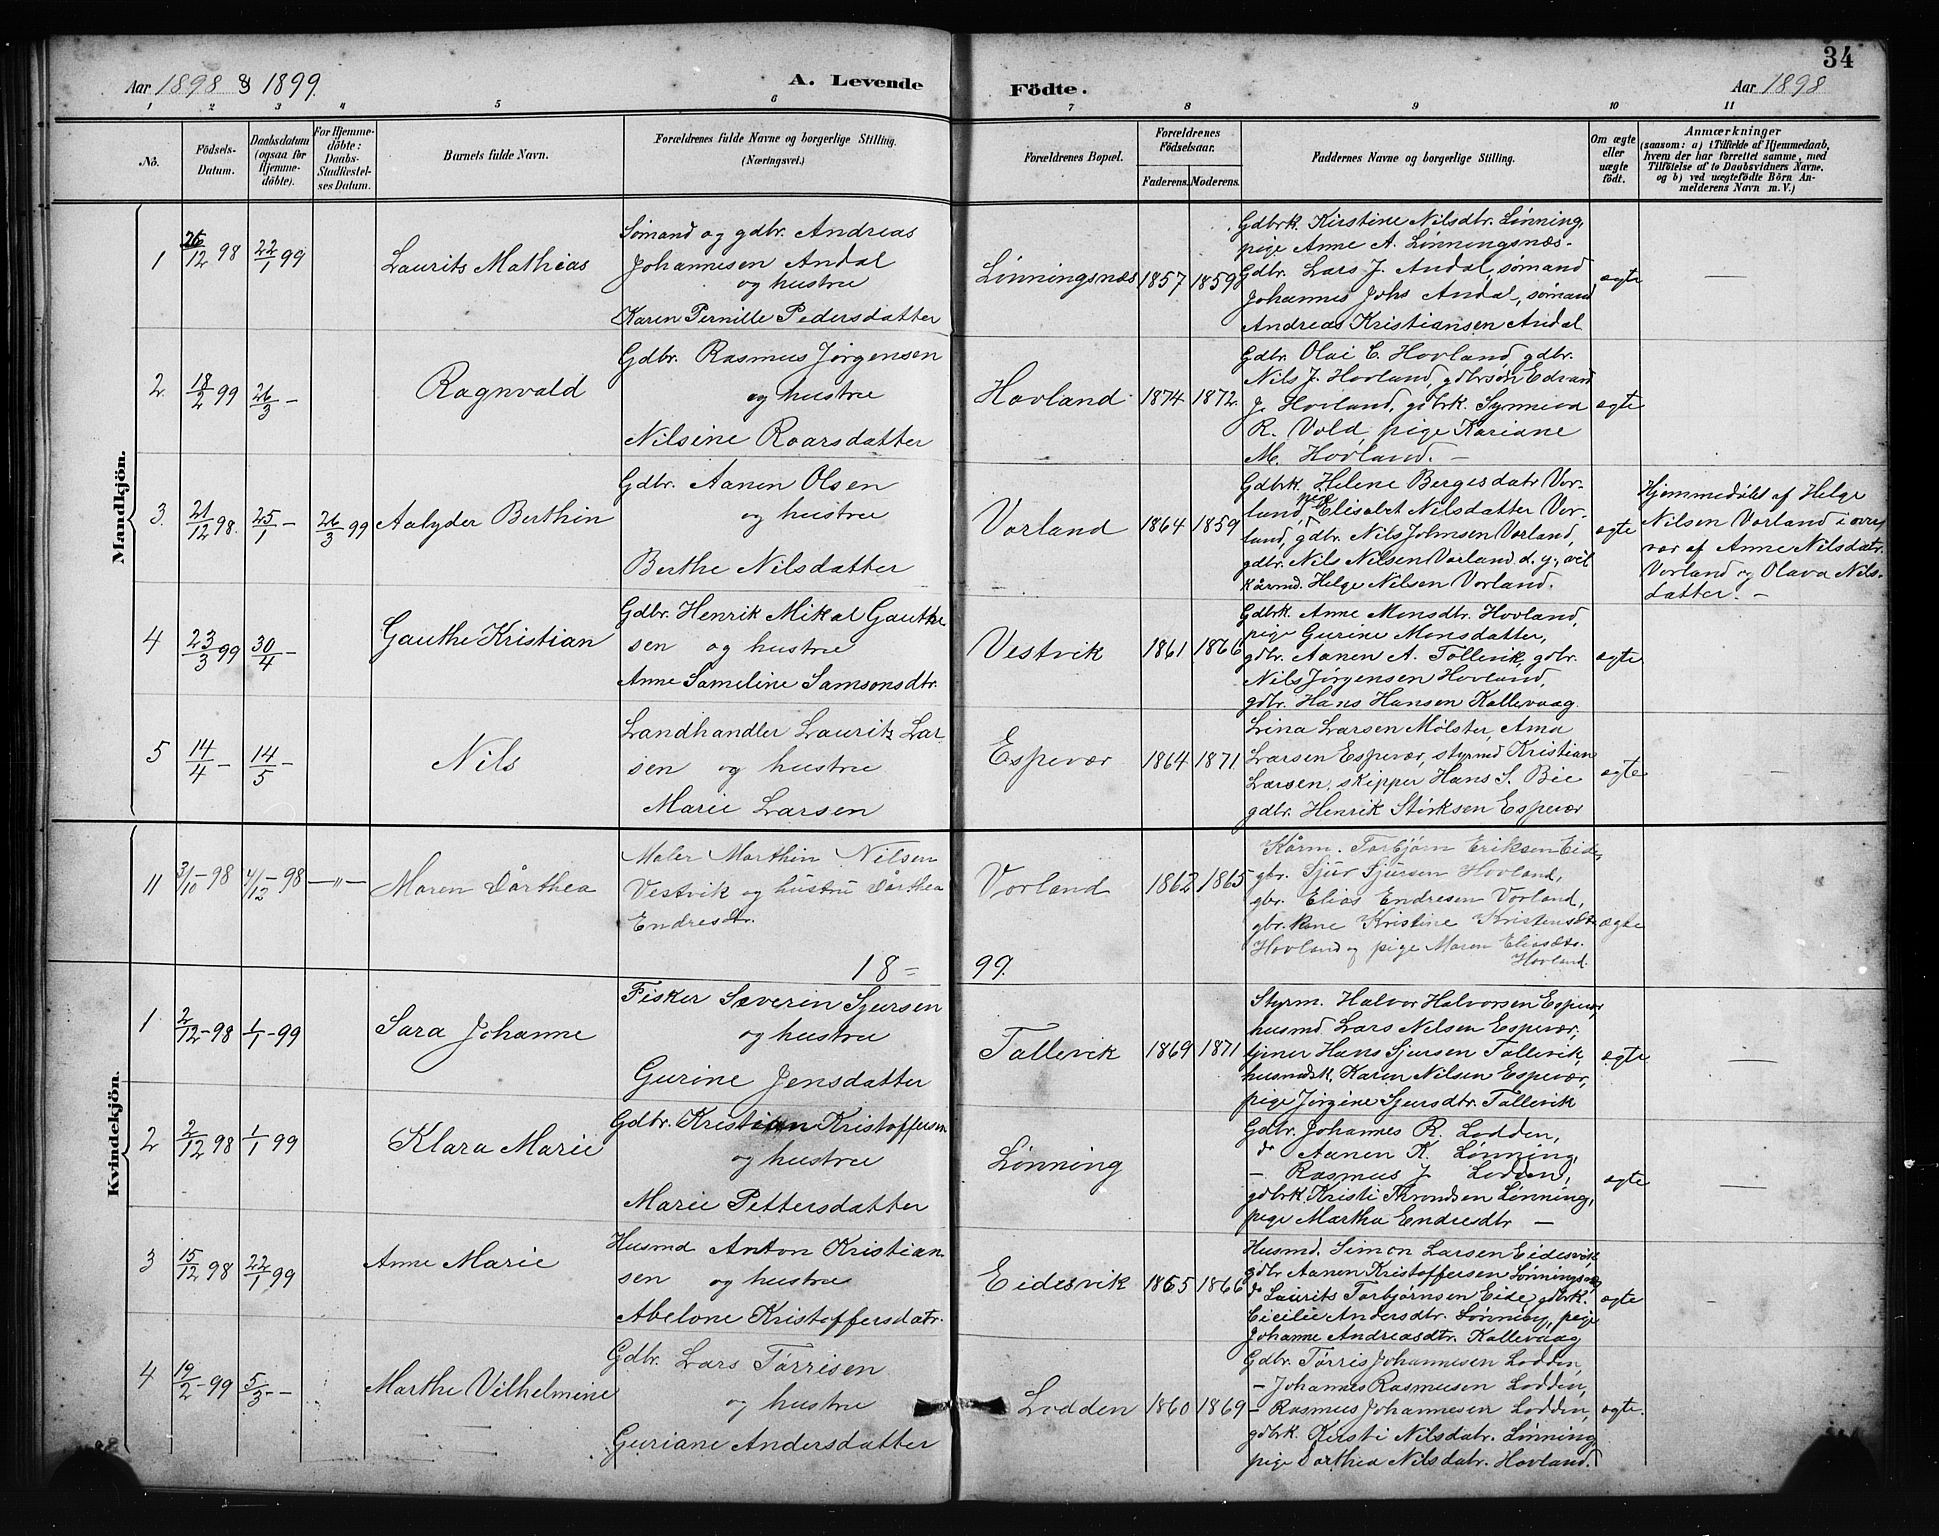 34
Aar 1898 & 1899.
A. Levende
Födte.
Aar 1898
1 2 3 4 5 6 7 8 9 10 11
No.
Födsels-
Datum.
Daabsdatum
(ogsaa for
Hjemme-
döbte).
For Hjemme-
döbte:
Daabs-
Stadfæstel-
ses Datum.
Barnets fulde Navn.
Forældrenes fulde Navne og borgerlige Stilling.
(Næringsvei.)
Forældrenes Bopæl.
Forældrenes
Födselsaar.
Faderens. Moderens.
Faddernes Navne og borgerlige Stilling.
Om ægte
eller
uægte
födt.
Anmærkninger
(saasom: a) i Tilfælde af Hjemmedaab,
hvem der har forrettet samme, med
Tilföielse af to Daabsvidners Navne,
og b) ved uægtefödte Börn An-
melderens Navn m. V.)
Mandkjön.
1 26/12 98 22/1 99
Laurits Mathias
Sømand og gdbr. Andreas
Johannesen Andal
og hustru
Karen Pernille Pedersdatter
Lønningsnæs 1857 1859
Gdbrk. Kirstine Nilsdtr. Lønning,
pige Anne A. Lønningsnæs-
Gdbr. Lars J. Andal, sømand
Johannes Johs Andal, sømand
Andreas Kristiansen Andal
ægte —
2. 18/2 99 26/3 —
Ragnvald
Gdbr. Rasmus Jørgensen
og hustru
Nilsine Roarsdatter
Hovland 1874 1872.
Gdbr. Olai C. Hovland, gdbr.
Nils J. Hovland, gdbrsøn Edvard
J. Hovland, gdbrk. Synneva
R. Vold, pige Kariane
M. Hovland. —
ægte
3. 21/12 98. 25/1 — 26/3 99
Aalyder Berthin
Gdbr. Aanen Olsen
og hustru
Berthe Nilsdatter
Vorland 1864 1859
Gdbrk. Helene Bergesdatr Vor-
land, Elisabet Nilsdatter Vor-
land, gdbr. Nils Johnsen Vorland,
gdbr. Nils Nilsen Vorland d. y.,
Kårmd. Helge Nilsen Vorland.
ægte
Hjemmedøbt af Helge
Nilsen Vorland i overv
vær af Anne Nilsdatr.
Vorland og Olava Nils-
datter. —
4 23/3 99 30/4 —
Gauthe Kristian
Gdbr. Henrik Mikal Gauthe
sen og hustru
Anne Sameline Samsonsdtr.
Vestvik 1861 1866
Gdbrk. Anne Monsdtr. Hovland,
pige Gurine Monsdatter,
gdbr. Aanen A. Tollevik, gdbr.
Nils Jørgensen Hovland,
gdbr. Hans Hansen Kallevaag
ægte
5 14/4 — 14/5 —
Nils
Landhandler Lauritz Lar
sen og hustru
Marie Larsen
Espevær 1864 1871
Lina Larsen Mølster, Ama
Larsen Espevær, styrmd Kristian
Larsen, skipper Hans S. Bee
gdbr. Henrik Størksen Espevær
ægte
Kvindekjön.
11 3/10—98 4/12—98 —"—
Maren Dårthea
Maler Marthin Nilsen
Vestvik og hustru Dårthea
Endresdtr.
Vorland 1862 1865
Kårm. Torbjørn Eriksen Eide,
gbr. Sjur Sjursen Hovland,
gbr. Elias Endresen Vorland,
gbr.kone Kristine Kristensdtr
Hovland og pige Maren Eliasdtr.
Hovland.
ægte
18 = 99.
1 2/12—98 1/1—99
Sara Johanne
Fisker Severin Sjursen
og hustru
Gurine Jensdatter
Tallevik 1869 1871
Styrm. Halvor Halvorsen Espevær,
husmd. Lars Nilsen Espevær,
tjener Hans Sjursen Tallevik,
husmdsk. Karen Nilsen Espevær,
pige Jørgine Sjursdtr. Tallevik
ægte —
2 2/12 98 1/1 99
Klara Marie
Gdbr. Kristian Kristoffersen
og hustru
Marie Pettersdatter
Lønning
Gdbr. Johannes R. Lodden,
do Aanen K. Lønning,
— Rasmus J. Lodden,
gdbrk. Kristi Throndsen Lønning,
pige Martha Endresdtr —
ægte —
3 15/12 98 22/1 99
Anne Marie
Husmd Anton Kristian-
sen og hustru
Abelone Kristoffersdatr.
Eidesvik 1865 1866
Husmd. Simon Larsen Eidesvik,
gdbr Aanen Kristoffersen Lønningsnæs
do Laurits Torbjørnsen Eide, gdbrk.
Cicilie Andersdtr. Lønning, pige
Johanne Andreasdtr. Kallevaag
ægte —
4 19/2—99 5/3 —
Marthe Vilhelmine
Gdbr. Lars Tørrisen
og hustru
Guriane Andersdatter
Lodden 1860 1869
Gdbr. Tørris Johannesen Lodden,
— Johannes Rasmusen Lodden,
— Rasmus Johannesen Lodden,
gdbrk. Kirsti Nilsdatr. Lønning
pige Dorthea Nilsdatr. Hovland.
ægte.